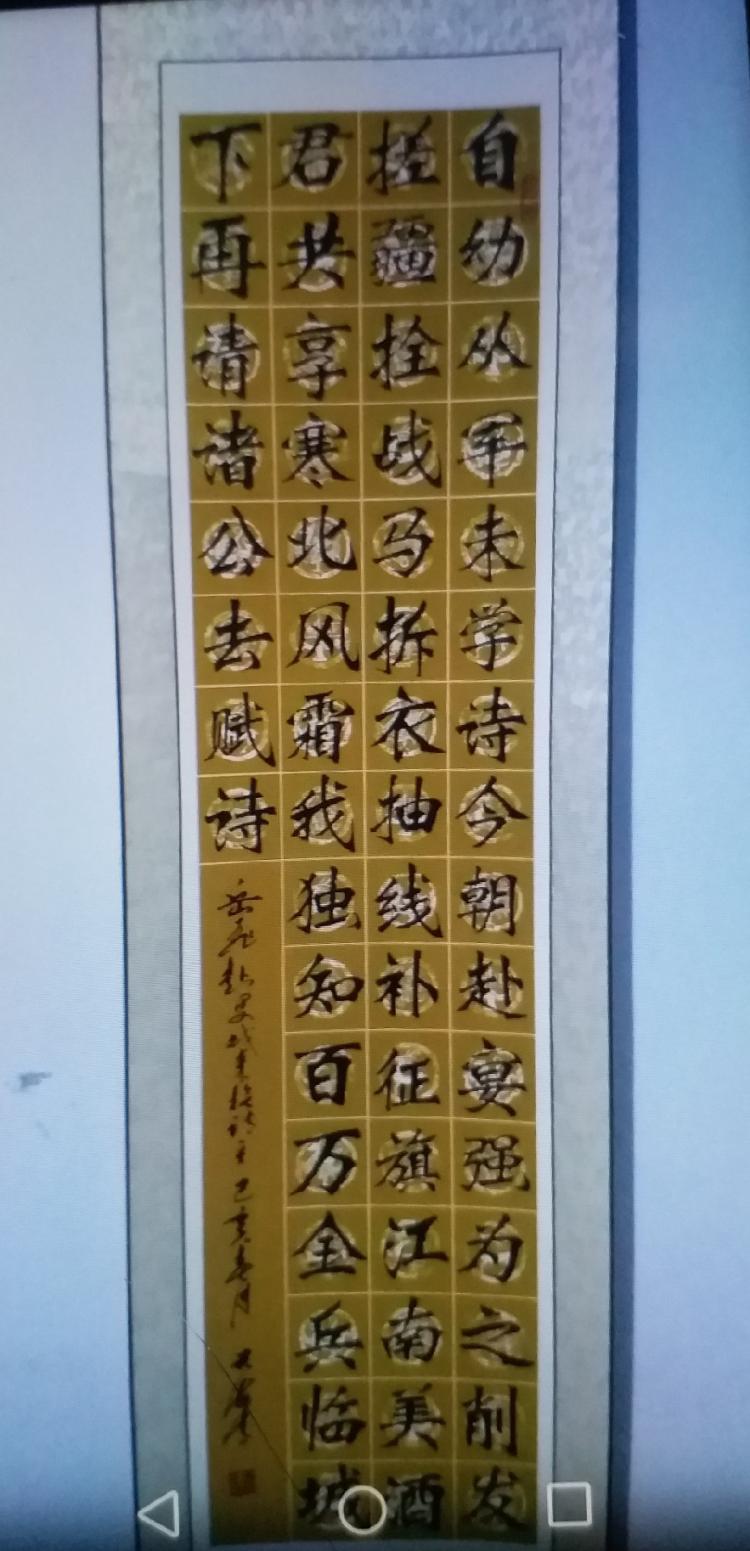 自幼从军未学诗今朝赴宴强为之削发
搓疆拴战马拆衣抽线补征旗江南美酒
君共享寒北风霜我独知百万金兵临城
下再请诸公去赋诗
岳飞赴
己亥春月